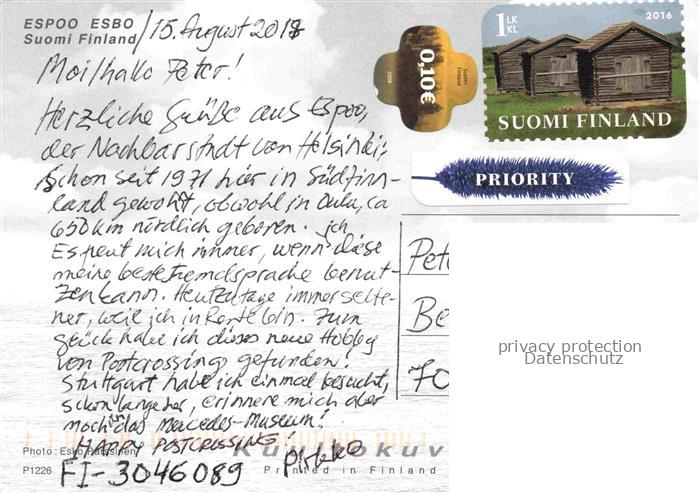 ESPOO ESBO
Suomi Finland
15. August 2017
Moi/hallo Peter!
Herzliche Grüße aus Espoo,
der Nachbarstadt von Helsinki;
schon seit 1971 hier in Südfinn-
land gewohnt, obwohl in Oulu, ca
650 km nördlich geboren. ich
Es freut mich immer, wenn diese
meine beste Fremdsprache benut-
zen kann. Heutzutage immer selte-
ner, weil ich in Rente bin. Zum
Glück habe ich dieses neue Hobby
von Postcrossing gefunden!
Stuttgart habe ich einmal besucht,
schon lange her, erinnere mich aber
noch an das Mercedes-Museum!
HAPPY POSTCROSSING!
Pirkko
FI-3046089
Photo: Esko
P1226
Printed in Finland
0,10€
Suomi
Finland
1 LK
KL
2016
SUOMI FINLAND
PRIORITY
Pet
Be
70
privacy protection
Datenschutz